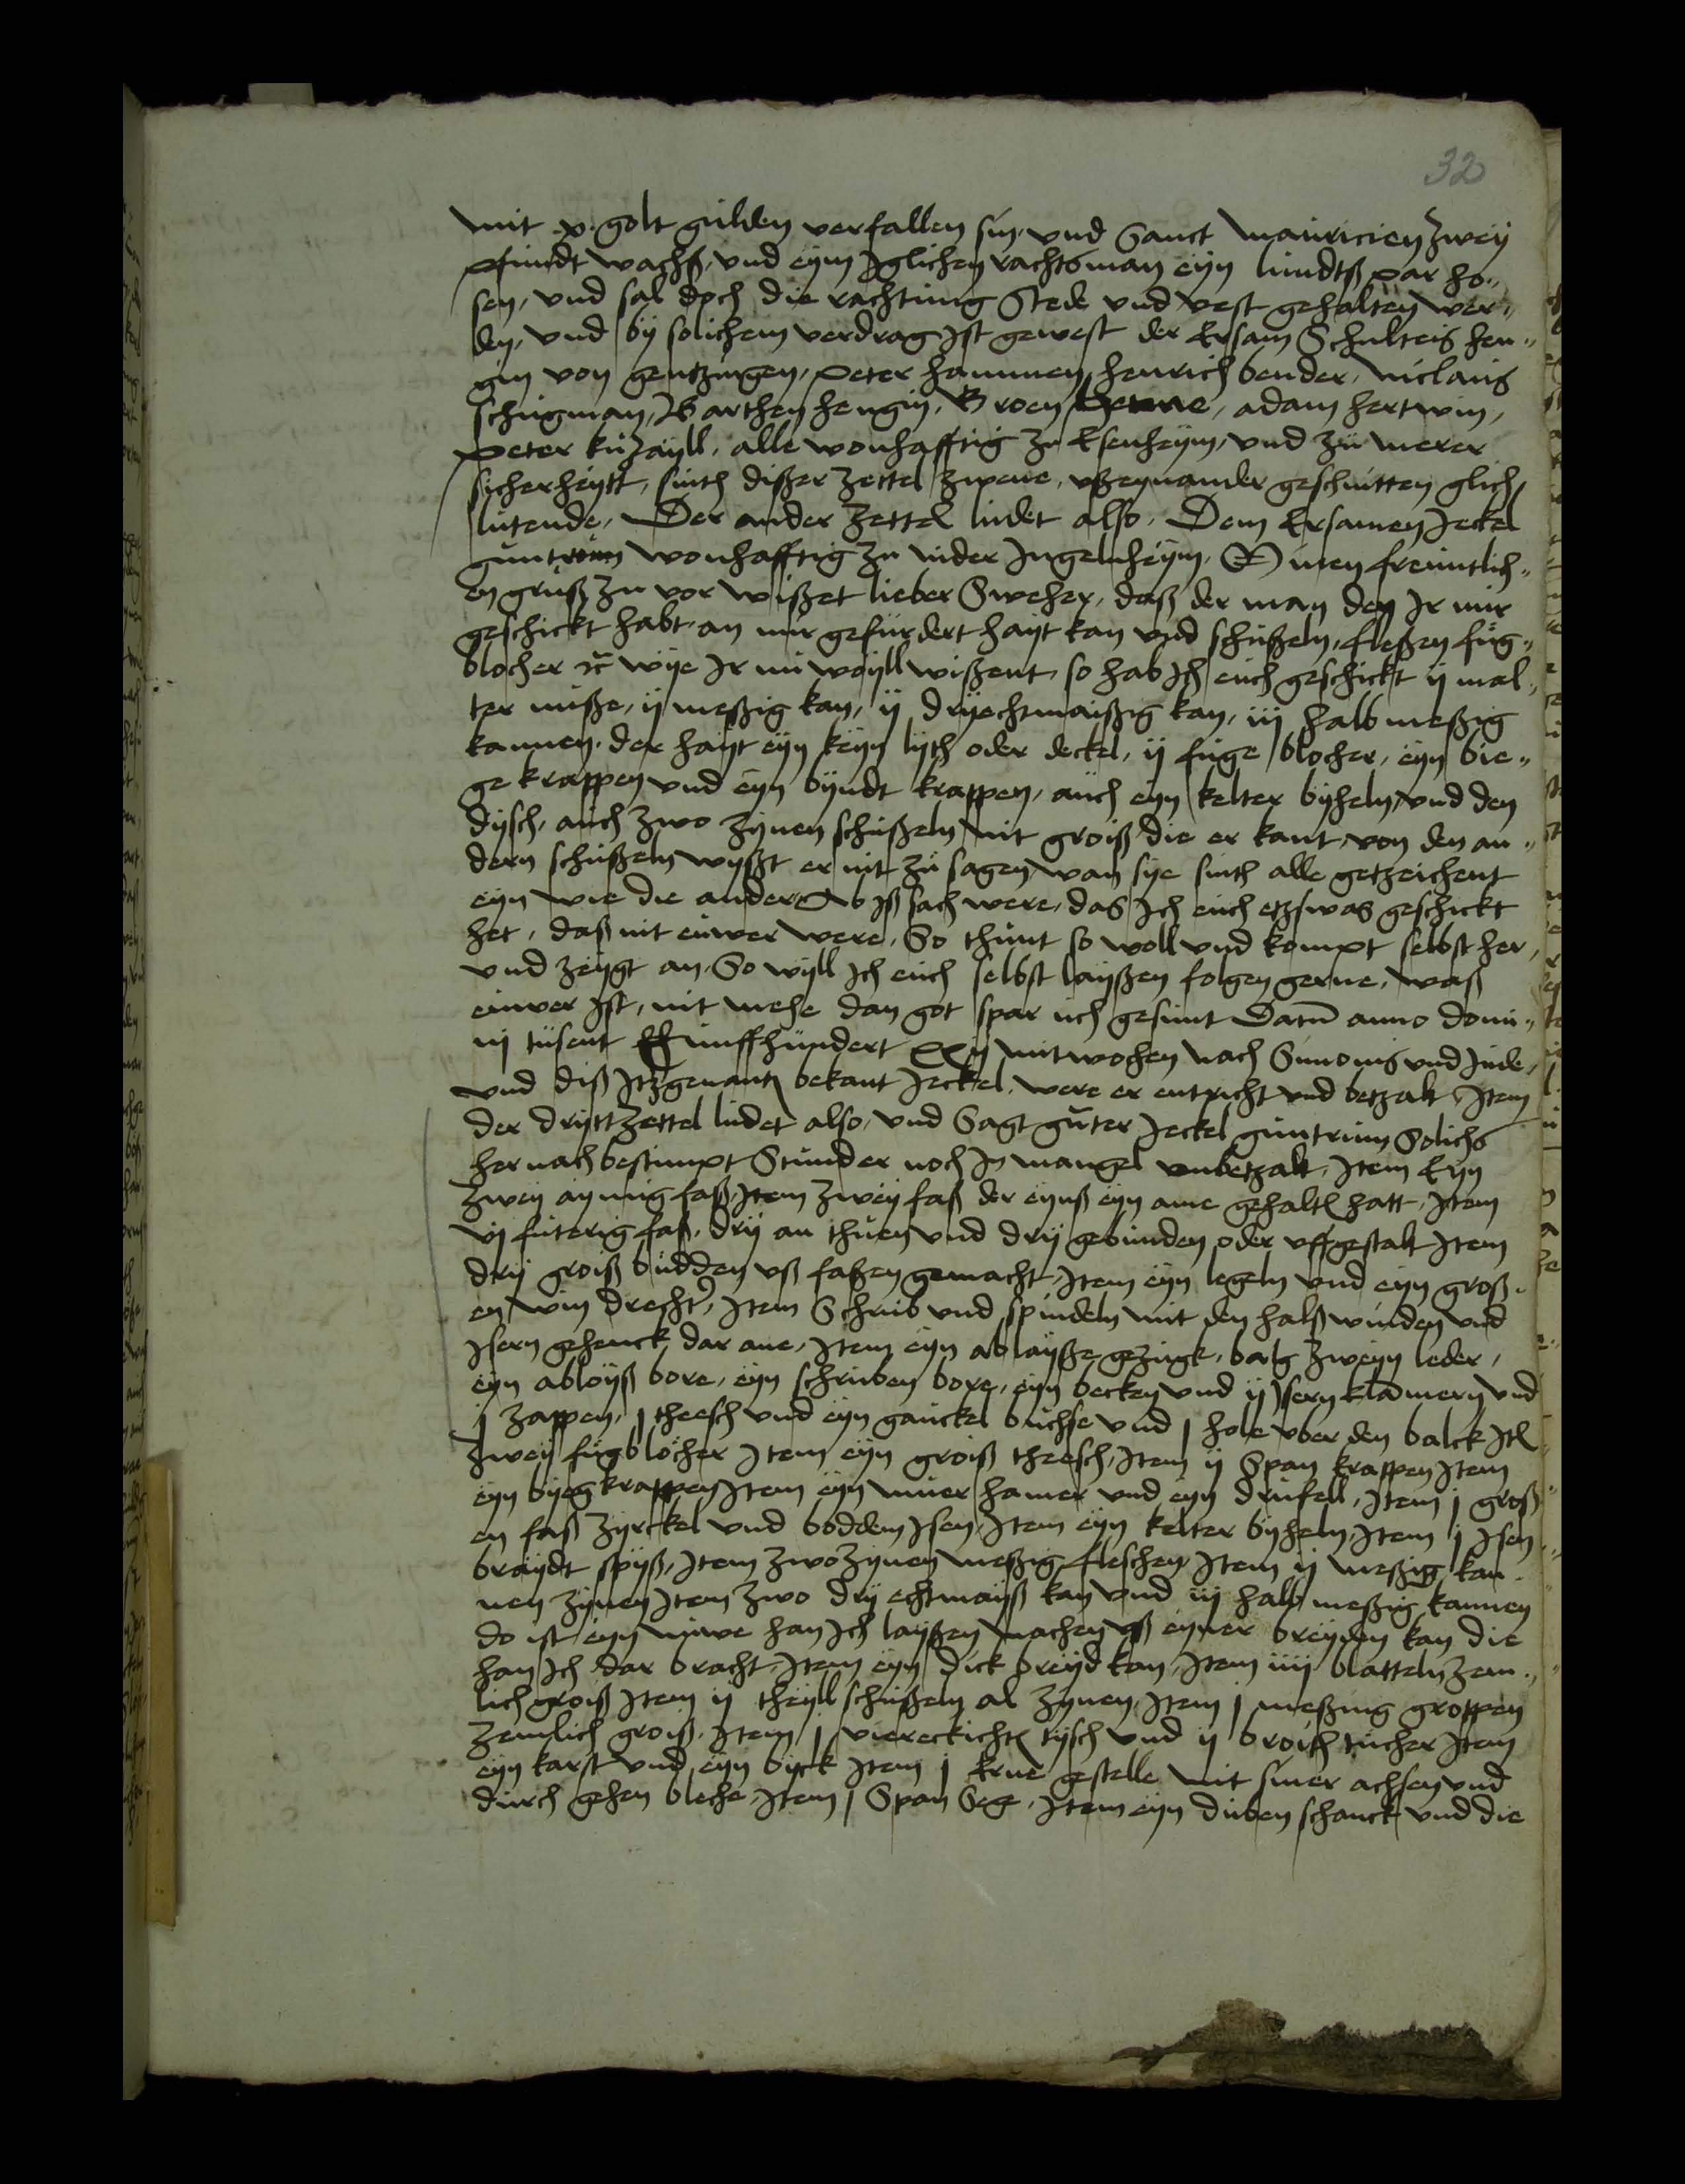 32
mit x golt gulden verfallen sin, und Sanct Mauricien zwey
pfundt wachß, und eym Iglichen rachtsman eyn lundtß par ho„
sen, und sal doch die rachtung Stede und vest gehalten wer„
den, und by solichem verdrag Ist gewest der Ersam Schulteis hen„
gin von gentzingen, peter hammen, henrich bender, niclaus
schugman, Barthen hengin, Broen henne, adam hertwin,
peter kuzayll, alle wonhafftig zu Esenheym, und zu merer
sicherheytt, sinth dißer zettel zwene, ußeynander geschnitten glich
lutende, Der ander zettel ludet also, Dem Ersamen Jeckel
guntrum wonhafftig zu nider Ingelnheym, meyn freuntlich„
en gruß zu vor wißet lieber Sweher, daß der man den Ir mir
geschickt habt, an mir gefurdert hayt kan und schußeln, fleßen fug„
blocher wye Ir nu woyll wißent, so hab Ich euch geschickt ij mal„
ter nuße, ij meßig kan, ij dryechtmaißig kan, iij halb meßig
kannen, der hayt eyn keyn lyth oder deckel, ij fuge blocher, eyn bie„
ge krappen und eyn byndt krappen, auch eyn kelter byheln, und den
dysch, auch zwo zynen schußeln nit groiß die er kant, von den an„
dern schußeln wyßt er nit zu sagen, wan sye sinth alle getzeichent
eyn wie die ander Ob Iß sach were, das Ich euch etzswas geschickt
het, daß nit euwer were, So thunt so woll und kompt selbst her,
und zeygt an, So wyll Ich euch selbst layßen folgen gerne, waß
euwer Ist, nit mehe dan got spar uch gesunt Datum anno domi„
nj tusent funffhundert xxij mitwochen nach Simonis und Jude,
und diß Itzgenant bekant Jeckel, were er entricht und betzalt, Item
der drytt zettel ludet also, und Sagt guter Jeckel guntrum Solichs
hernach bestimpt Stunder noch In mangel unbetzalt, Item Eyn
zwey aymig faß, Item zwey faß der eynß eyn ame gehalten hatt, Item
vj futerig faß, dry an thuen und dry gebunden oder uffgestalt Item
dry groiß budden uß faßen gemacht, Item eyn legeln und eyn groß„
en win drechter, Item Schrub und spindeln mit den halß winden und
Isern gehenck dar ane, Item eyn ablayße gezugk, balg zweyn leder,
eyn abloyß bore, eyn schruben bore, eyn becken und ij Isern klamern und
j zappen, j theesch und eyn gauckel buchse und j hole uber den balck Item
zwey fugblocher Item eyn groiß theesch, Item ij Span krappen Item
eyn byeg krappen Item eyn muer hamer und eyn drufell, Item j groß
en faß zyrckel und boddem Isen, Item eyn kelter byheln, Item j Isen
braydt spyß, Item zwo zynen meßig fleschen, Item ij meßig kan
nen zynen Item zwo dry echtmayß kan und iij halb meßig kannen
do ist eyn nuwe han Ich layßen machen uß eyner breyden kan die
han Ich dar bracht, Item eyn dick breyd kan, Item iiij blatteln zem„
lich groiß Item ij theyll schußeln al zynen, Item j meßing groppen
zemlich groiß, Item j viereckichten tysch und ij broith tucher Item
eyn karst und eyn byck Item j Erne gestelle mit siner achsen und
durch gehen bleche, Item j Span Sege, Item eyn duben schanck und die